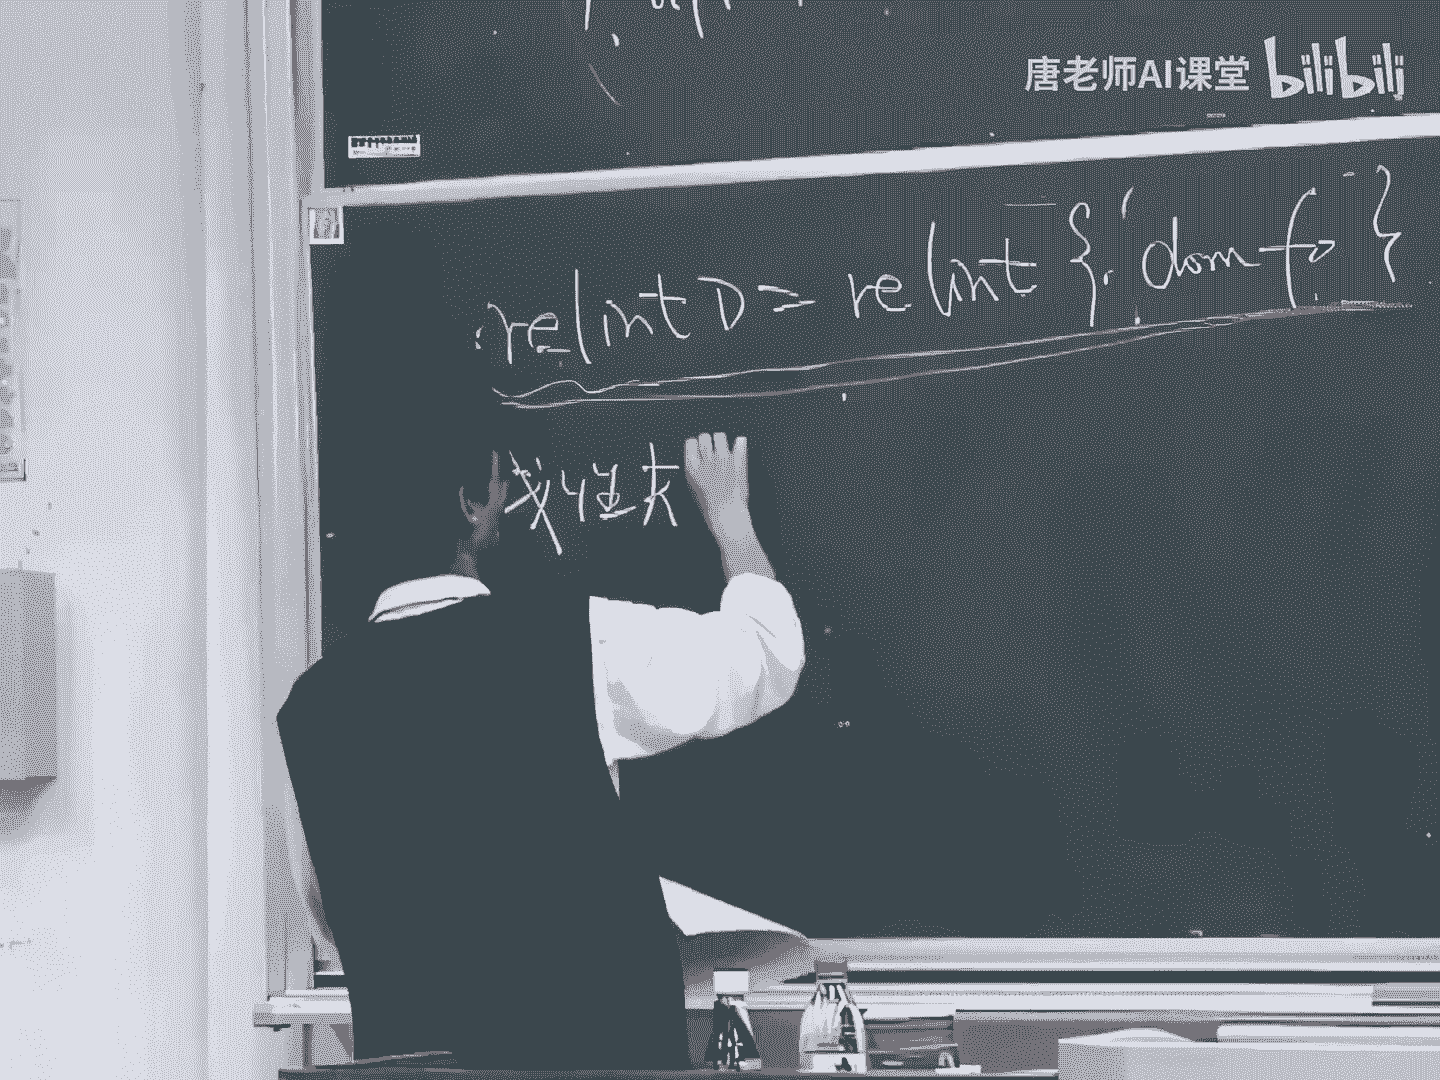 唐老师AI课堂 bilibili
relint D = relint { dom f₀ }
线性夫